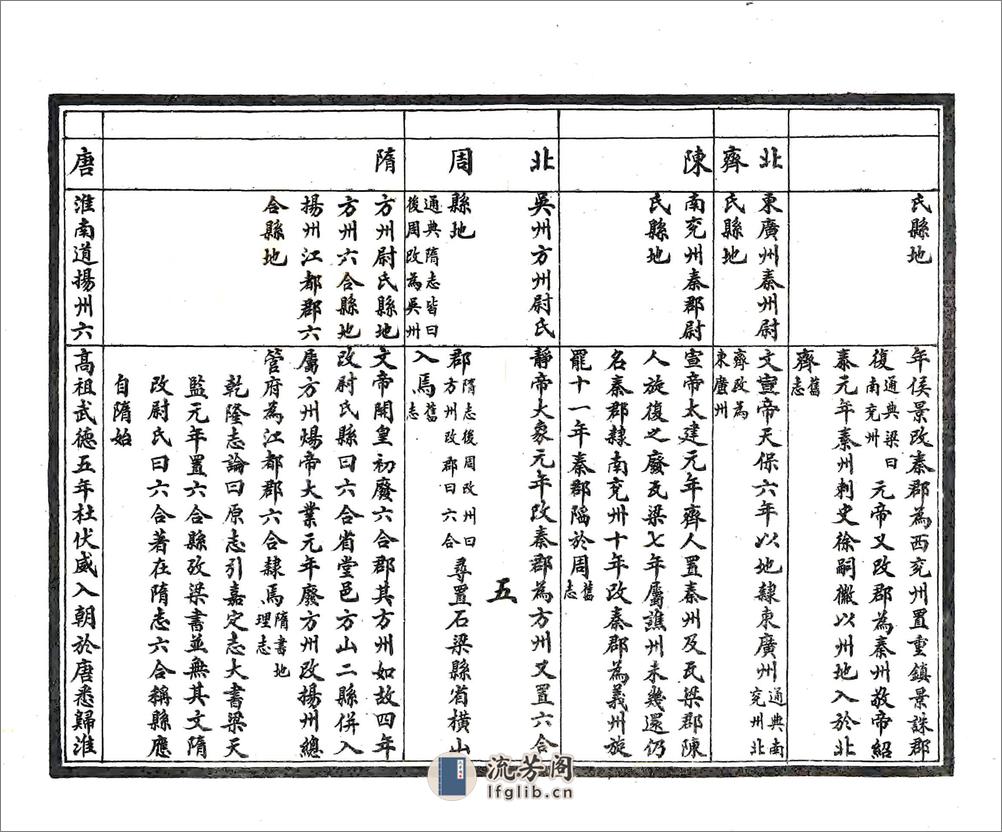 氏縣地
年侯景改秦郡為西兗州置重鎮景誅郡
復通典梁曰南兗州元帝又改郡為秦州敬帝紹
泰元年秦州刺史徐嗣徽以州地入於北
齊舊志
北齊
東廣州秦州尉
氏縣地
文宣帝天保六年以地隸東廣州通典南兗州北
齊改為東廣州
陳
南兗州秦郡尉
氏縣地
宣帝太建元年齊人置秦州及瓦梁郡陳
人旋復之廢瓦梁七年屬譙州未幾還仍
名秦郡隸南兗州十年改秦郡為義州旋
罷十一年秦郡陷於周舊志
北周
吳州方州尉氏
縣地通典隋志皆曰後周改為吳州
靜帝大象元年改秦郡為方州又置六合
五
郡隋志後周改州曰方州改郡曰六合尋置石梁縣省橫山
入焉舊志
隋
方州尉氏縣地
方州六合縣地
揚州江都郡六
合縣地
文帝開皇初廢六合郡其方州如故四年
改尉氏縣曰六合省堂邑方山二縣併入
屬方州煬帝大業元年廢方州改揚州總
管府為江都郡六合隸焉隋書地理志
乾隆志論曰原志引嘉定志大書梁天
監元年置六合縣攷梁書並無其文隋
改尉氏曰六合著在隋志六合稱縣應
自隋始
唐
淮南道揚州六
高祖武德五年杜伏威入朝於唐悉歸淮
流芳阁
lfglib.cn